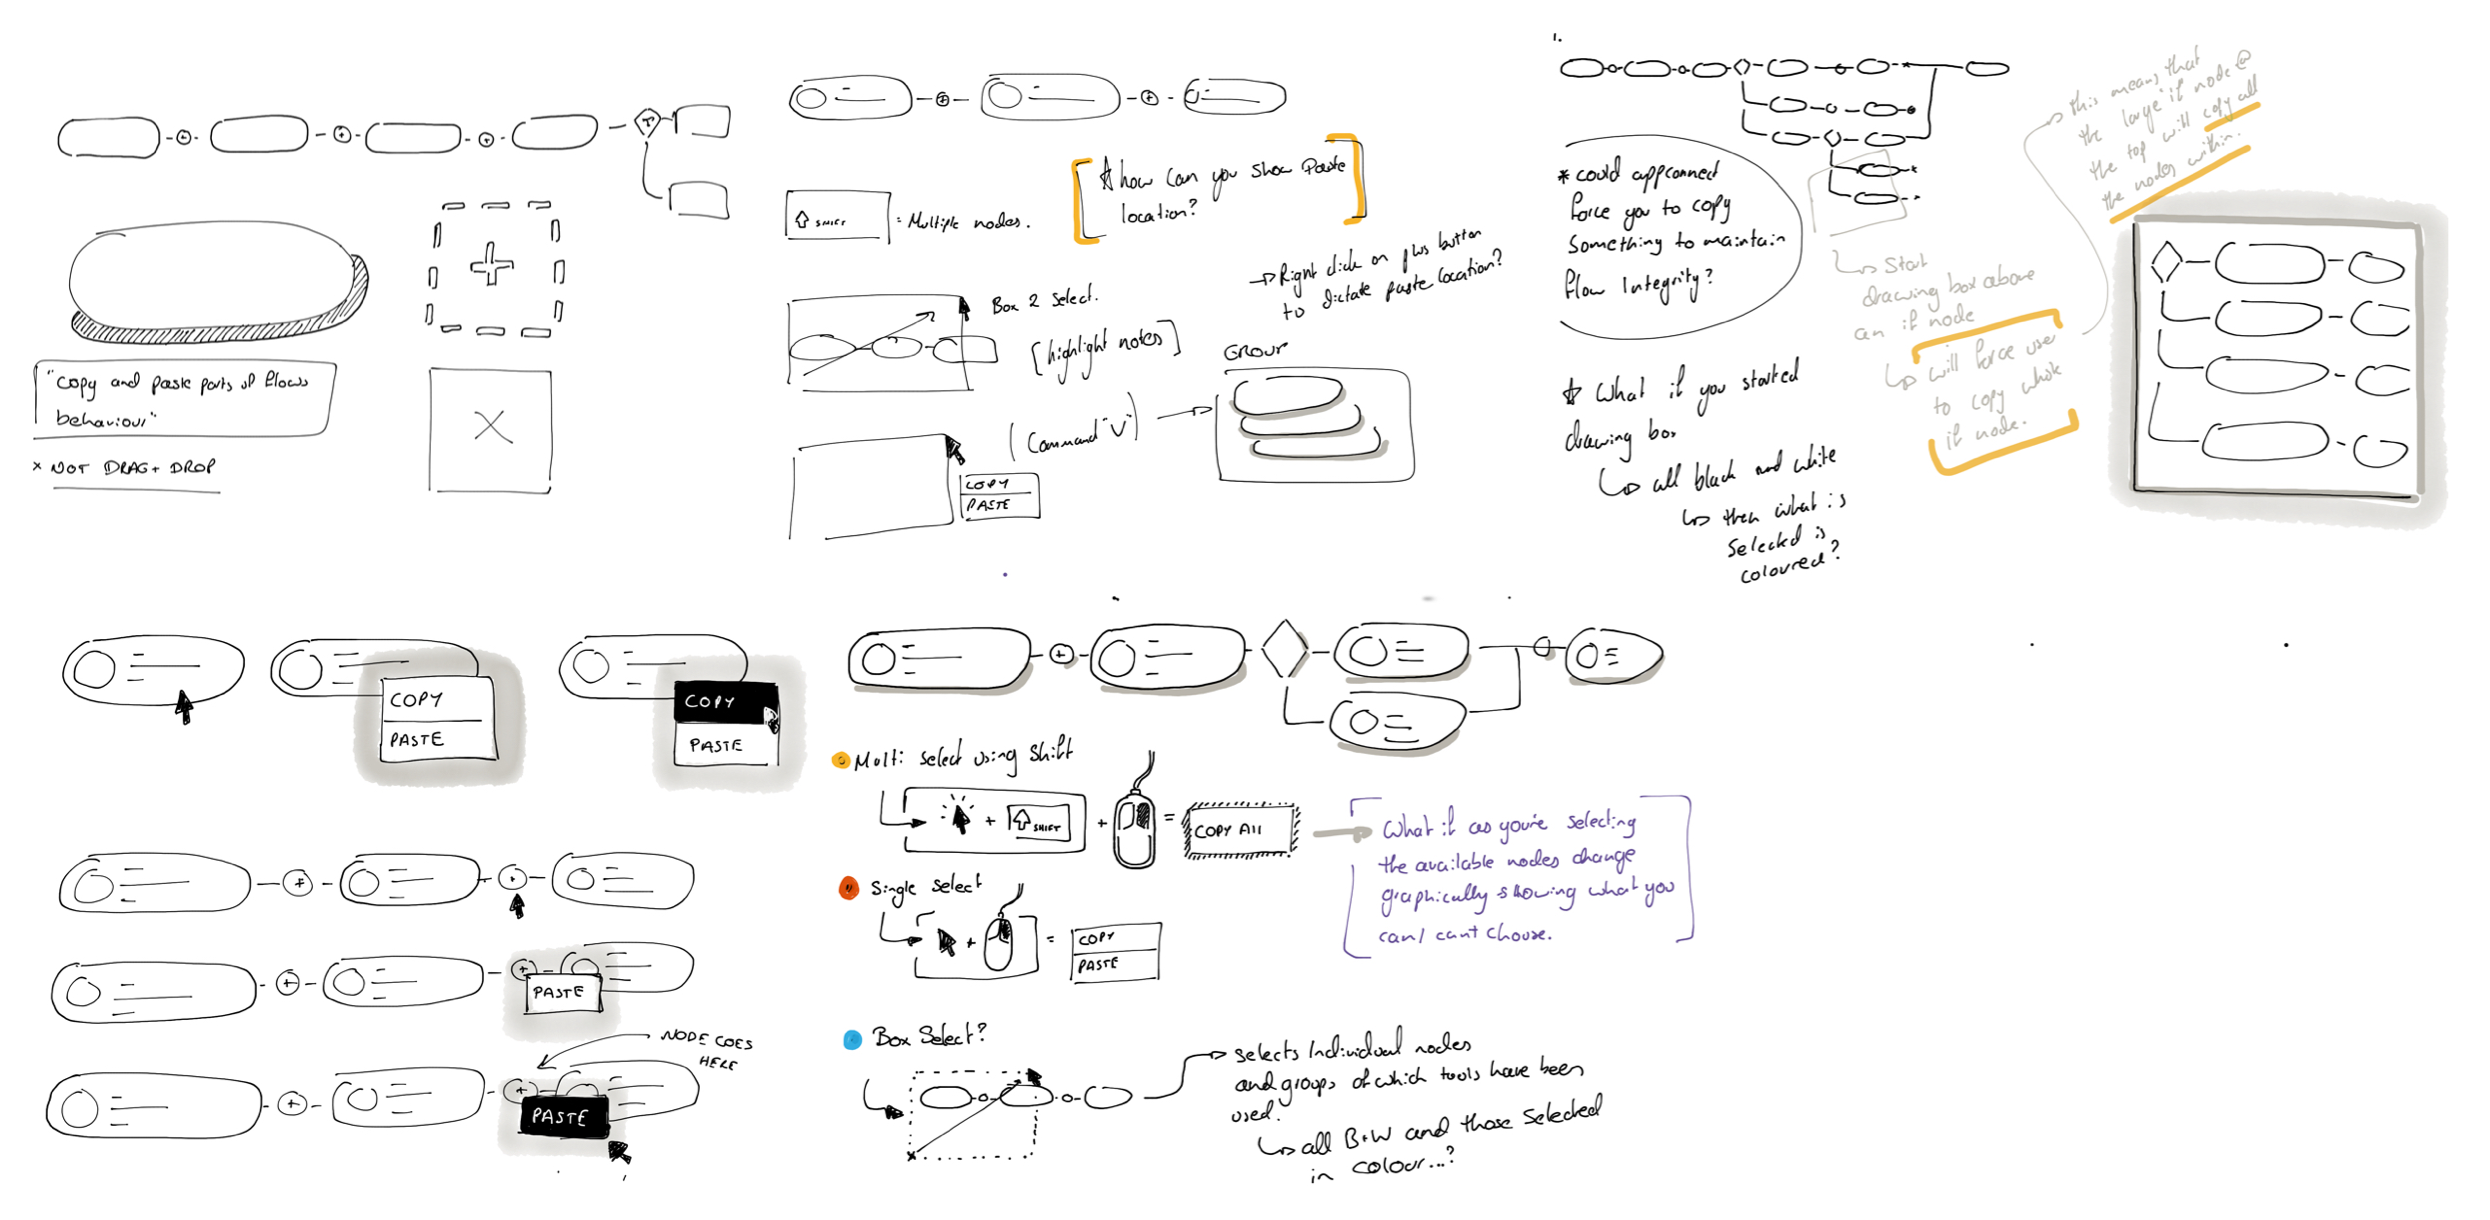 "Copy and paste parts of flows
behaviour"
x NOT DRAG + DROP
SHIFT
= Multiple nodes.
* how can you show Paste
location?
→ Right click on plus button
to dictate paste location?
Box 2 Select.
[highlight notes]
(Command "V")
GROUP
COPY
PASTE
1.
* could appconnect
force you to copy
Something to maintain
flow Integrity?
* What if you started
drawing box
↳ all black and white
↳ then what is
selected is
coloured?
↳ Start
drawing box above
an if node
↳ will force user
to copy whole
if node.
→ this means that
the large "if" node @
the top will copy all
the nodes within.
COPY
PASTE
COPY
PASTE
PASTE
NODE GOES
HERE
PASTE
Multi select using Shift
+ SHIFT + = COPY All
What if as you're selecting
the available nodes change
graphically showing what you
can/cant choose.
Single Select
+ =
COPY
PASTE
Box Select?
selects Individual nodes
and groups of which tools have been
used.
↳ all B+W and those Selected
in colour...?